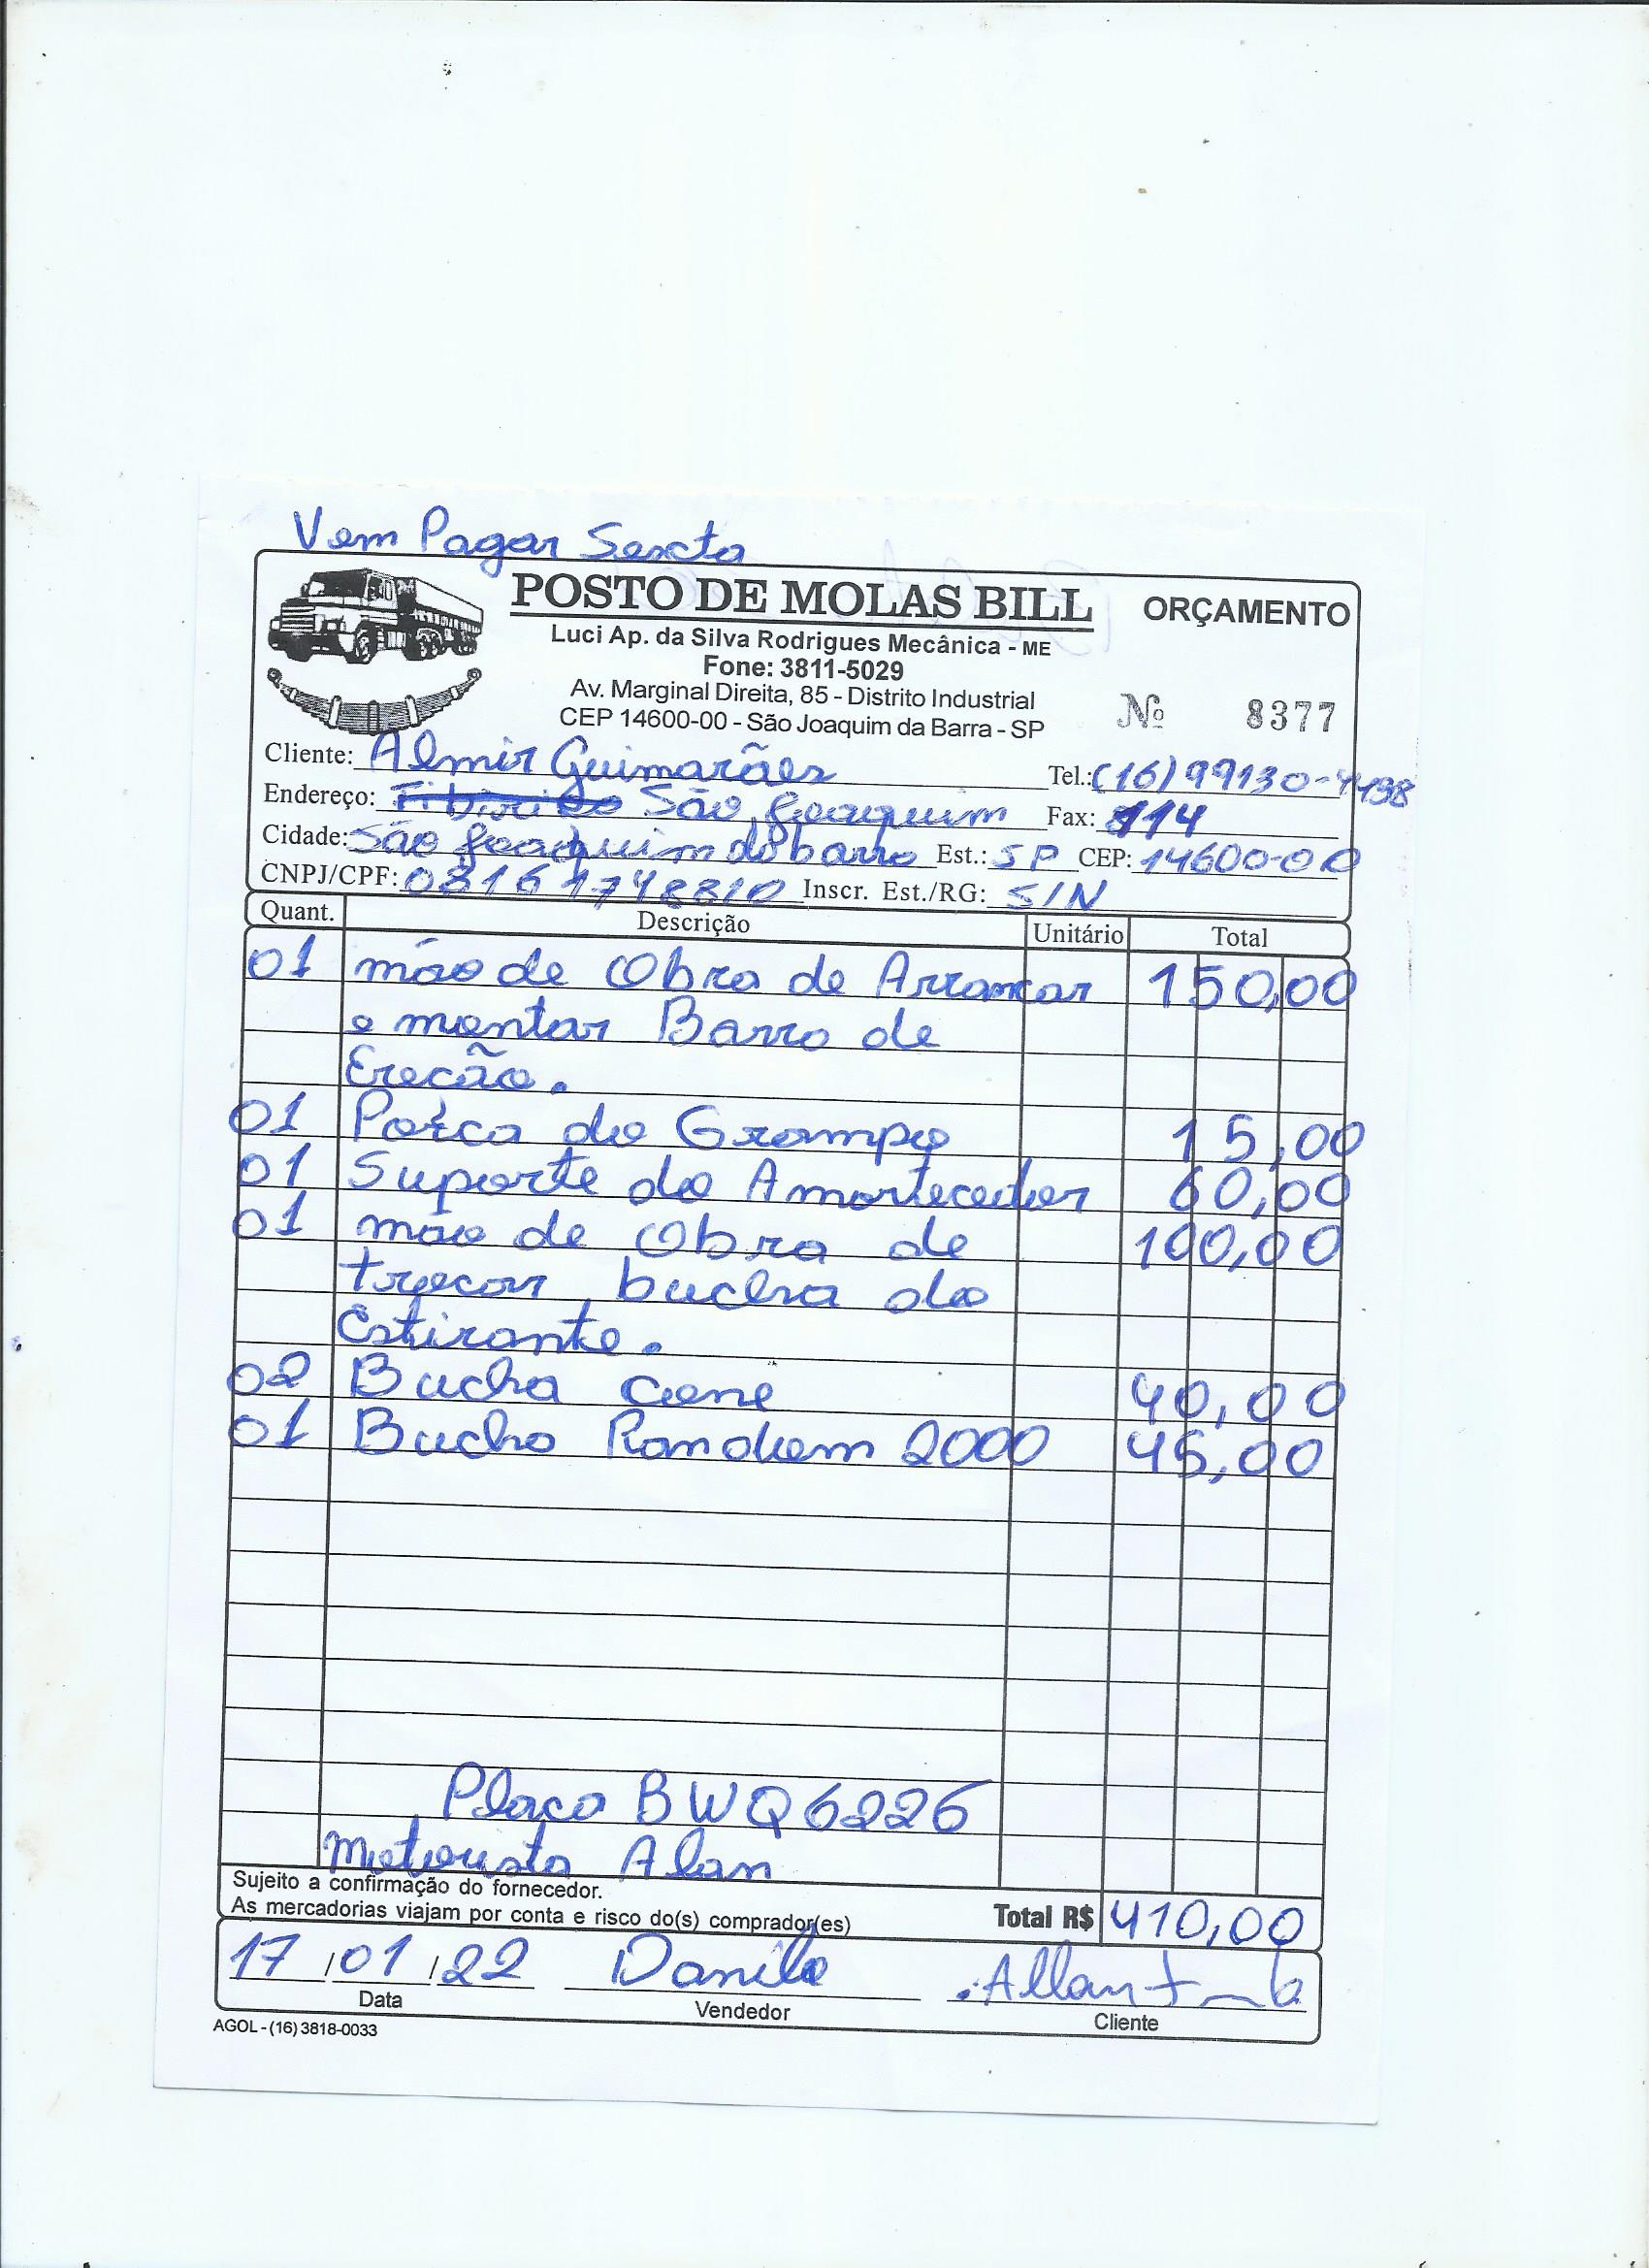 Vem Pagar Sexta
POSTO DE MOLAS BILL ORÇAMENTO
Luci Ap. da Silva Rodrigues Mecânica - ME
Fone: 3811-5029
Av. Marginal Direita, 85 - Distrito Industrial
CEP 14600-00 - São Joaquim da Barra - SP
Nº 8377
Cliente: Almir Guimarães Tel.: (16) 99130-4498
Endereço: São Joaquim Fax: 114
Cidade: São Joaquim da barra Est.: SP CEP: 14600-00
CNPJ/CPF: 08161748810 Inscr. Est./RG: S/N
Quant. Descrição Unitário Total
01 mão de Obra de Arrancar 150,00
e montar Barra de
Ereção.
01 Porca do Grampo 15,00
01 Suporte do Amortecedor 60,00
01 mão de Obra de 100,00
trocar bucha do
Estirante.
02 Bucha cone 40,00
01 Bucha Randem 2000 45,00
Placa BWQ6226
Motorista Alan
Sujeito a confirmação do fornecedor.
As mercadorias viajam por conta e risco do(s) comprador(es) Total R$ 410,00
17/01/22 Danilo Allan
Data Vendedor Cliente
AGOL - (16) 3818-0033